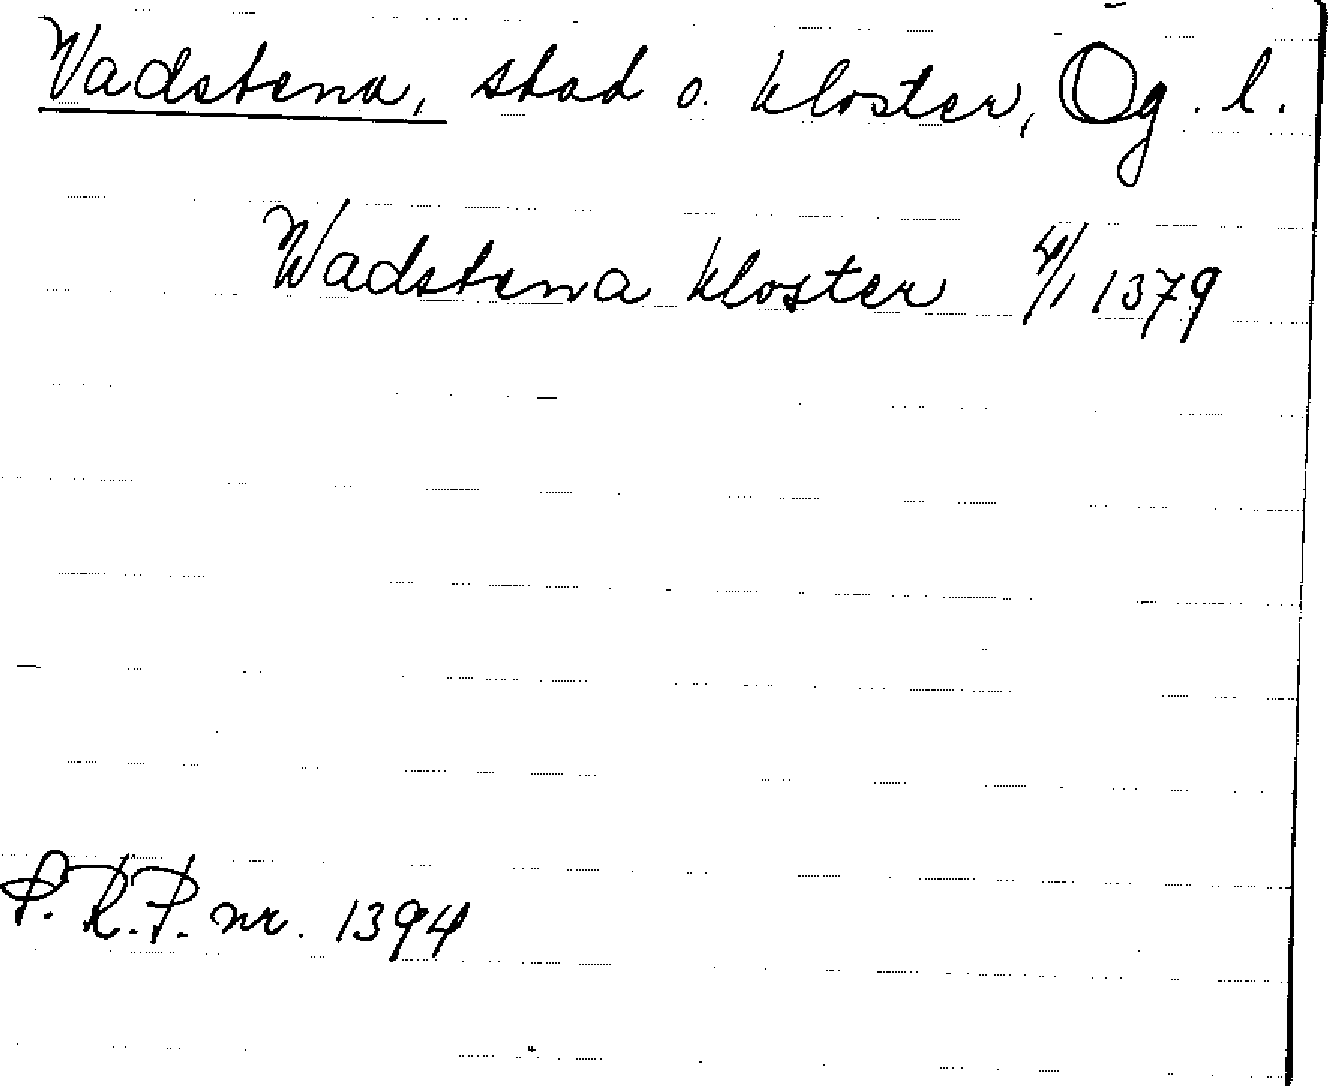 Vadstena, stad o. kloster, Ög. l.
Wadstena kloster 4/1 1379
S.R.P. nr. 1394